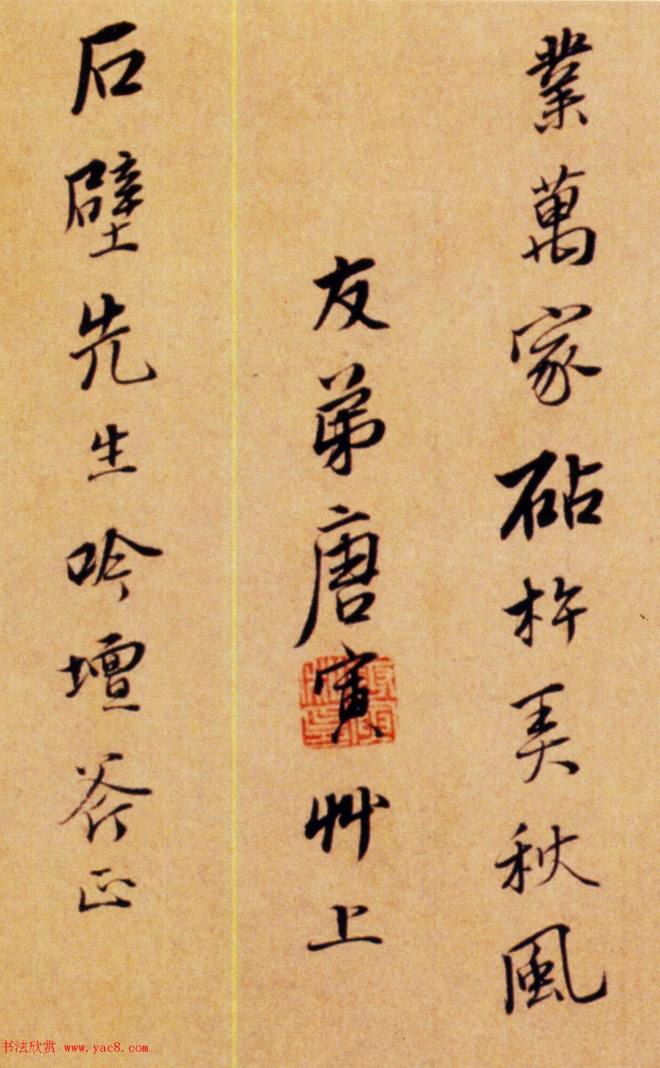 業萬家砧杵弄秋風
友弟唐寅艸上
石壁先生吟壇斧正
书法欣赏 www.yac8.com